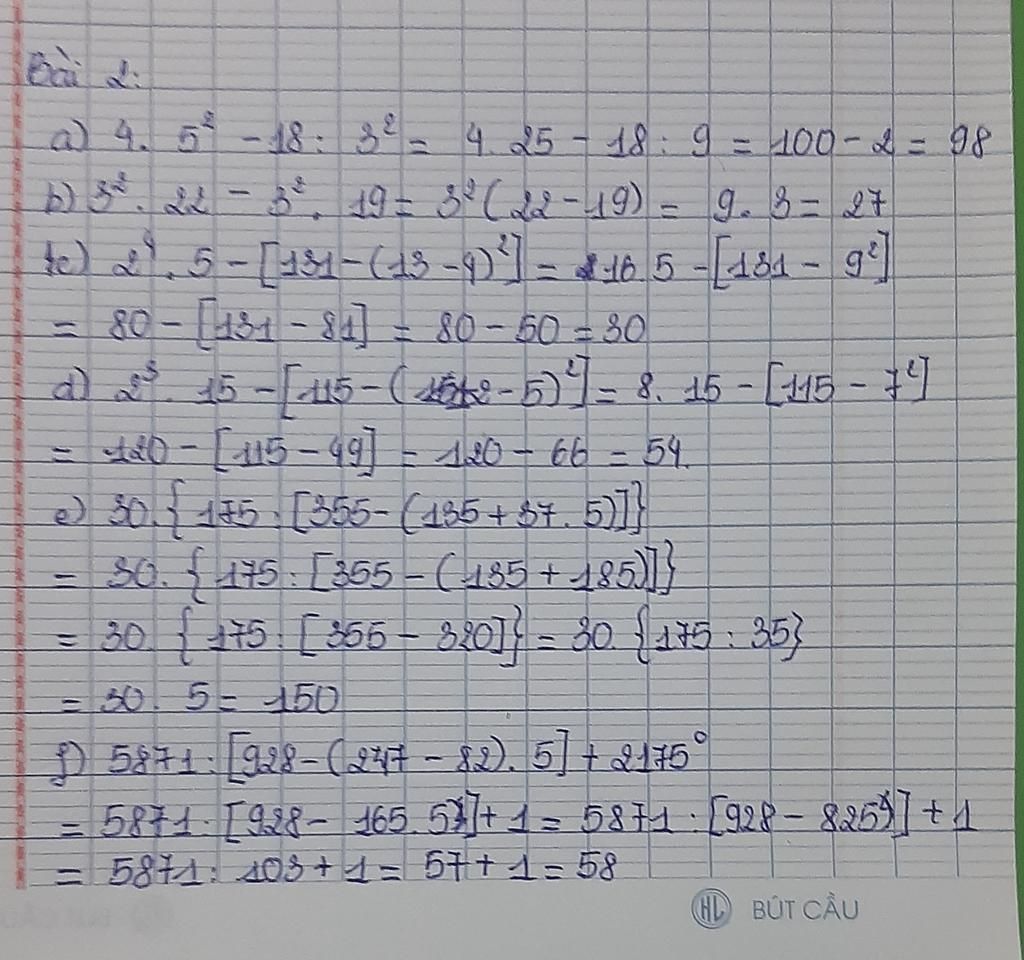 Bài 2:
a) 4. 5² - 18 : 3² = 4. 25 - 18 : 9 = 100 - 2 = 98
b) 3². 22 - 3². 19 = 3² (22 - 19) = 9. 3 = 27
c) 2⁴. 5 - [131 - (13 - 4)²] = 16. 5 - [131 - 9²]
= 80 - [131 - 81] = 80 - 50 = 30
d) 2³. 15 - [115 - (12 - 5)²] = 8. 15 - [115 - 7²]
= 120 - [115 - 49] = 120 - 66 = 54.
e) 30. {175 : [355 - (135 + 37. 5)]}
= 30. {175 : [355 - (135 + 185)]}
= 30. {175 : [355 - 320]} = 30. {175 : 35}
= 30. 5 = 150
f) 5871 : [928 - (247 - 82). 5] + 2175⁰
= 5871 : [928 - 165. 5] + 1 = 5871 : [928 - 825] + 1
= 5871 : 103 + 1 = 57 + 1 = 58
HL BÚT CẦU